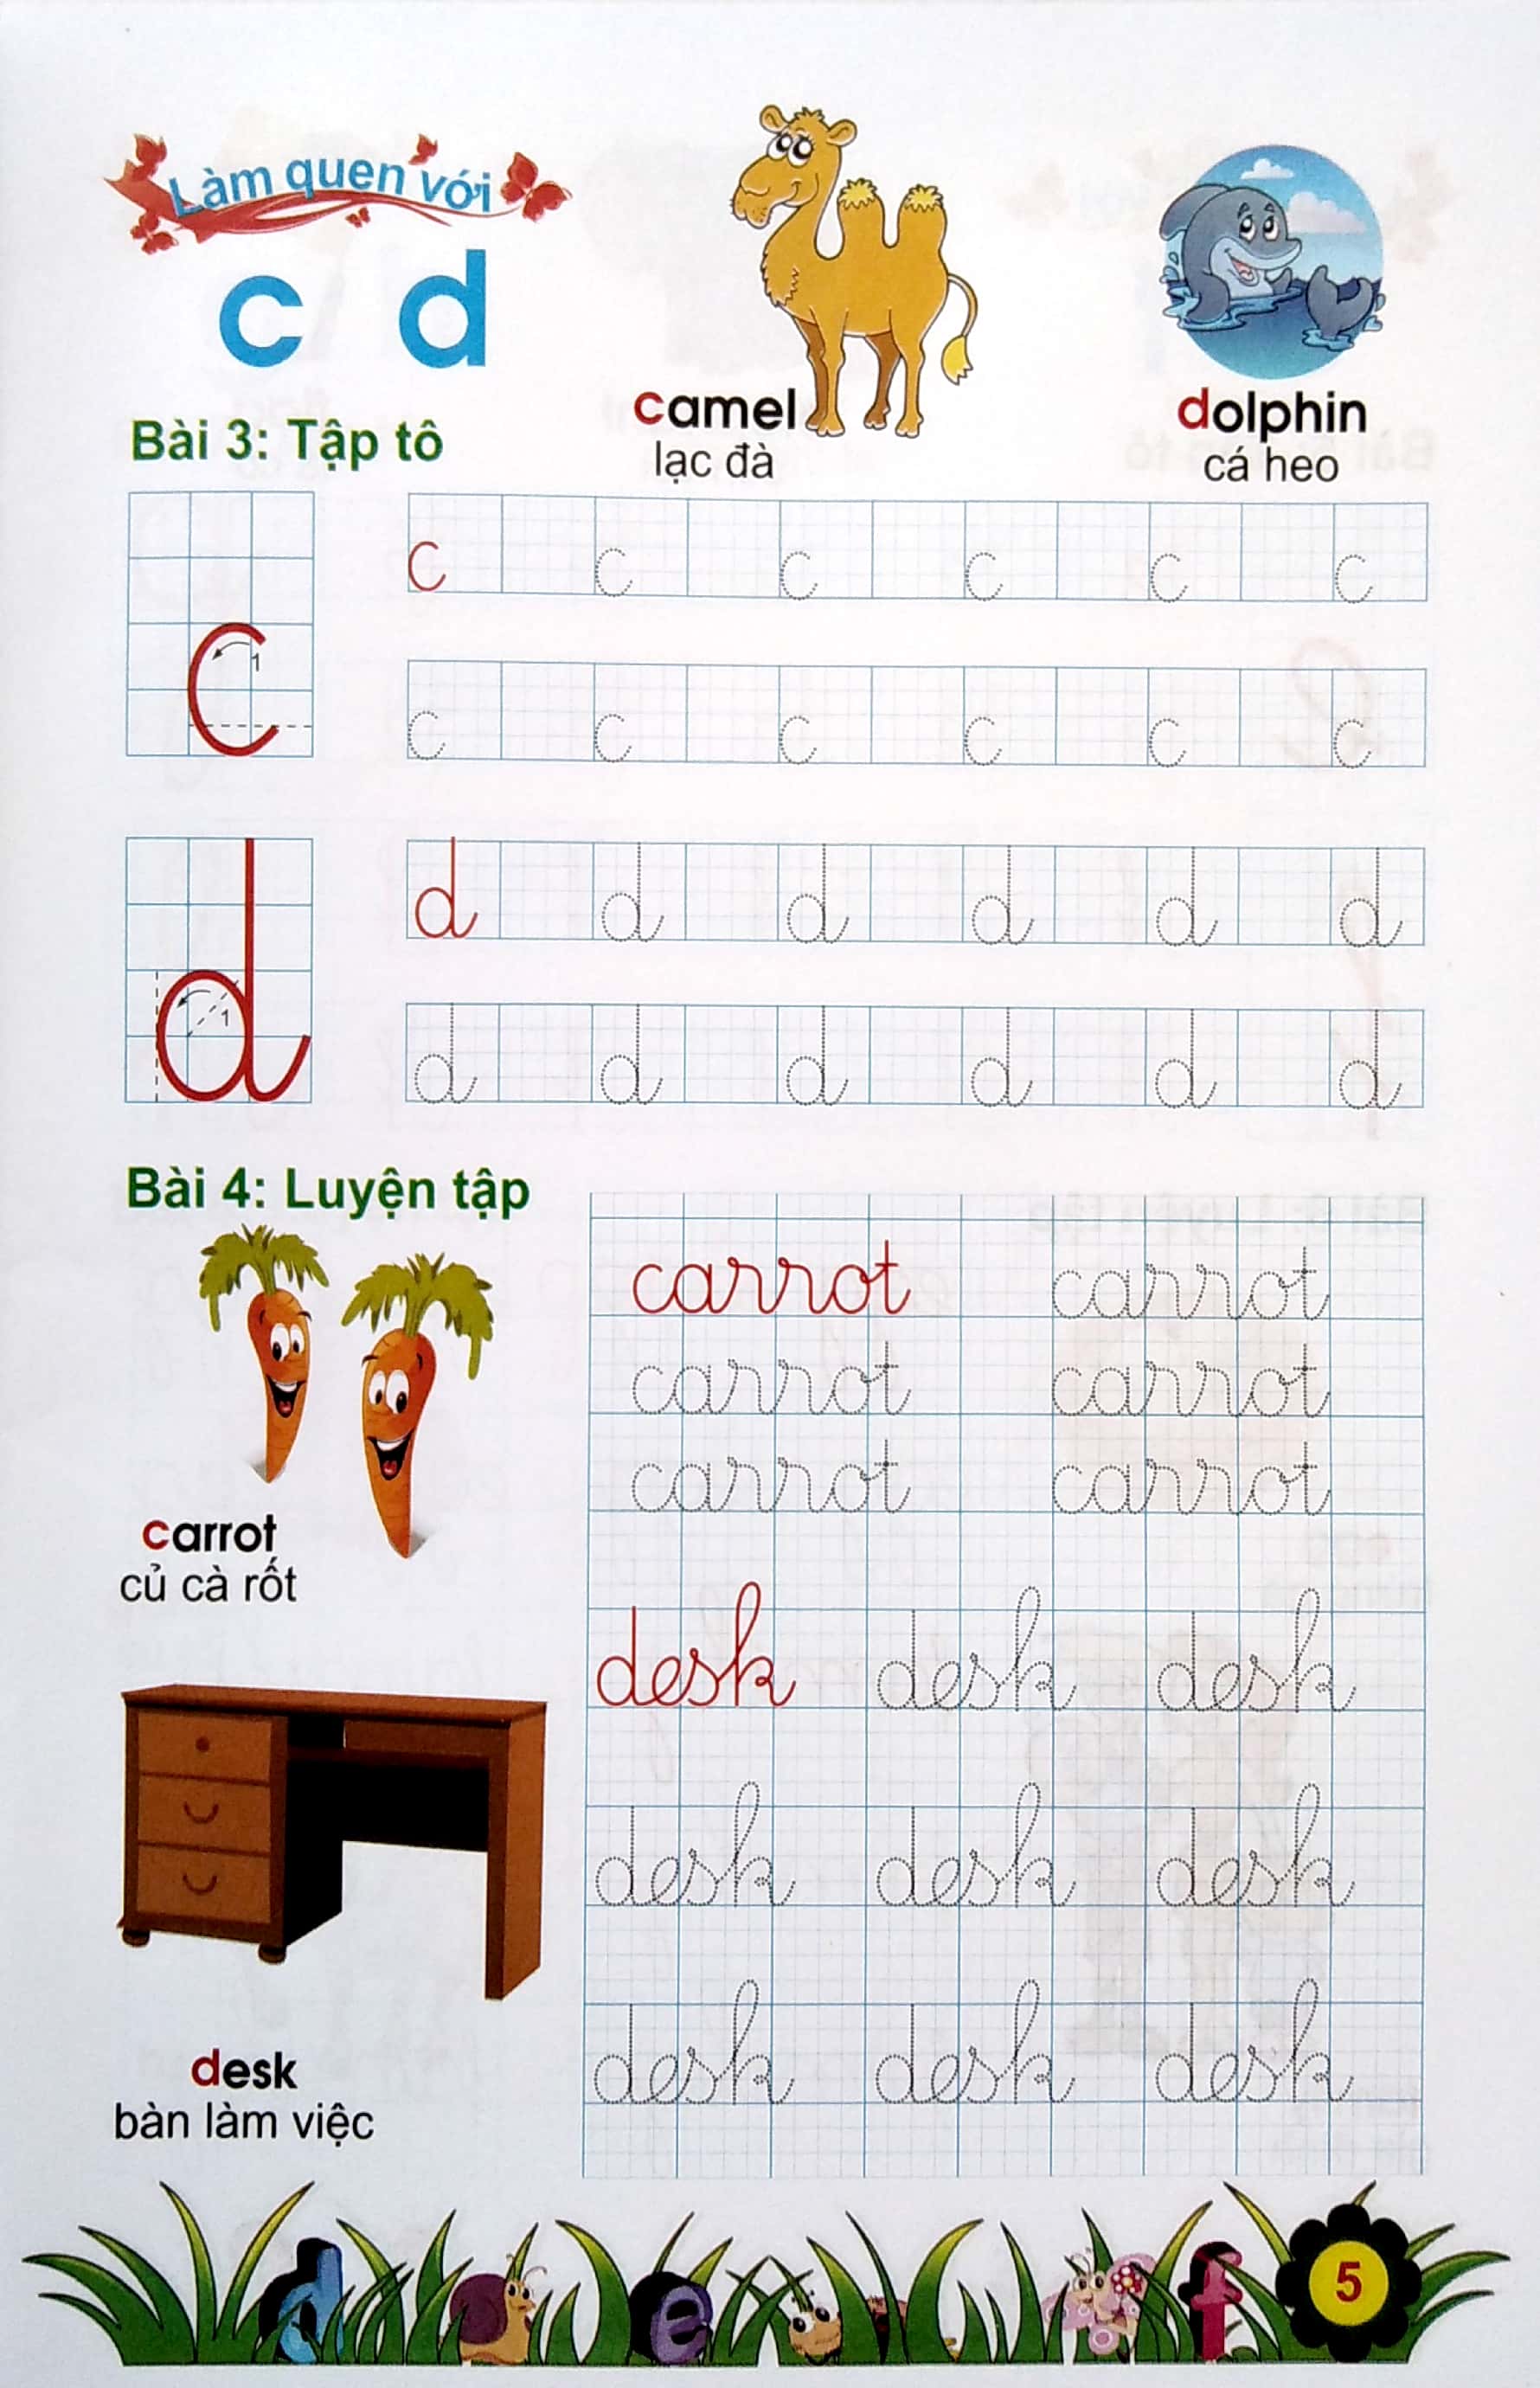 Làm quen với
c d
camel
lạc đà
dolphin
cá heo
Bài 3: Tập tô
c 1
c c c c c c
c c c c c c
d 1
d d d d d d
d d d d d d
Bài 4: Luyện tập
carrot carrot
carrot carrot
carrot carrot
carrot
củ cà rốt
desk desk desk
desk desk desk
desk desk desk
desk
bàn làm việc
d e f 5